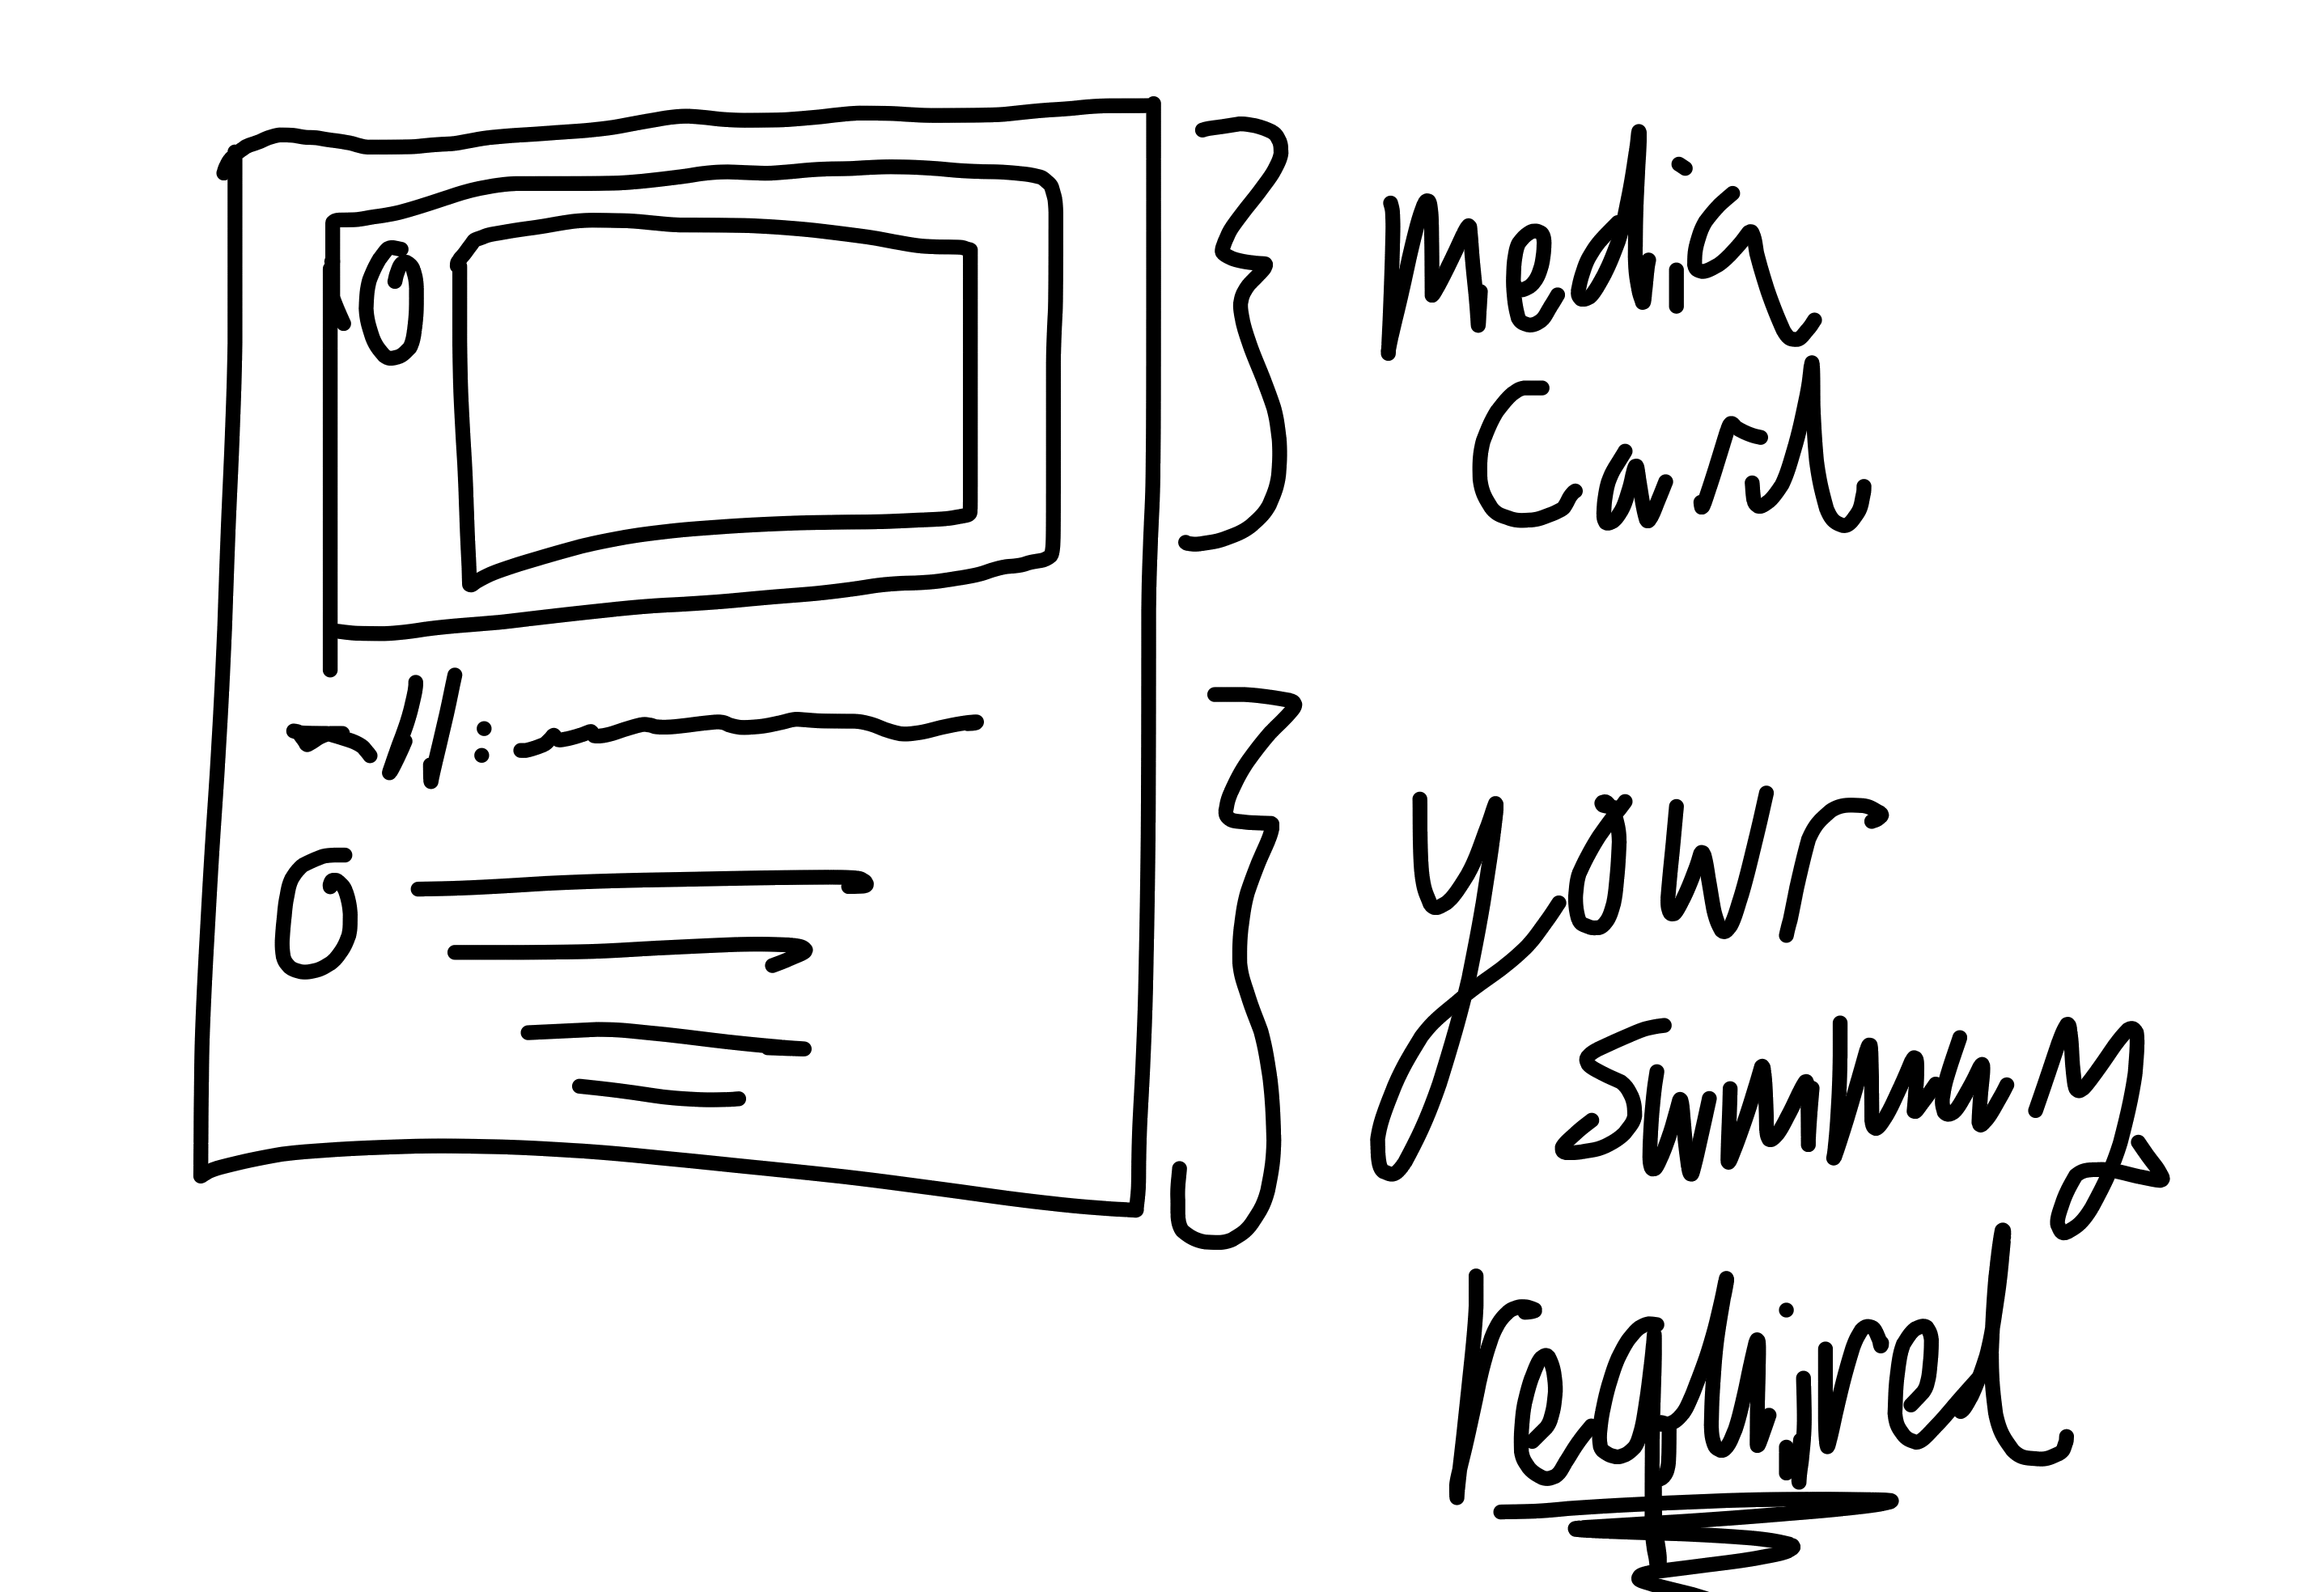 Media
Card
your
summary
required